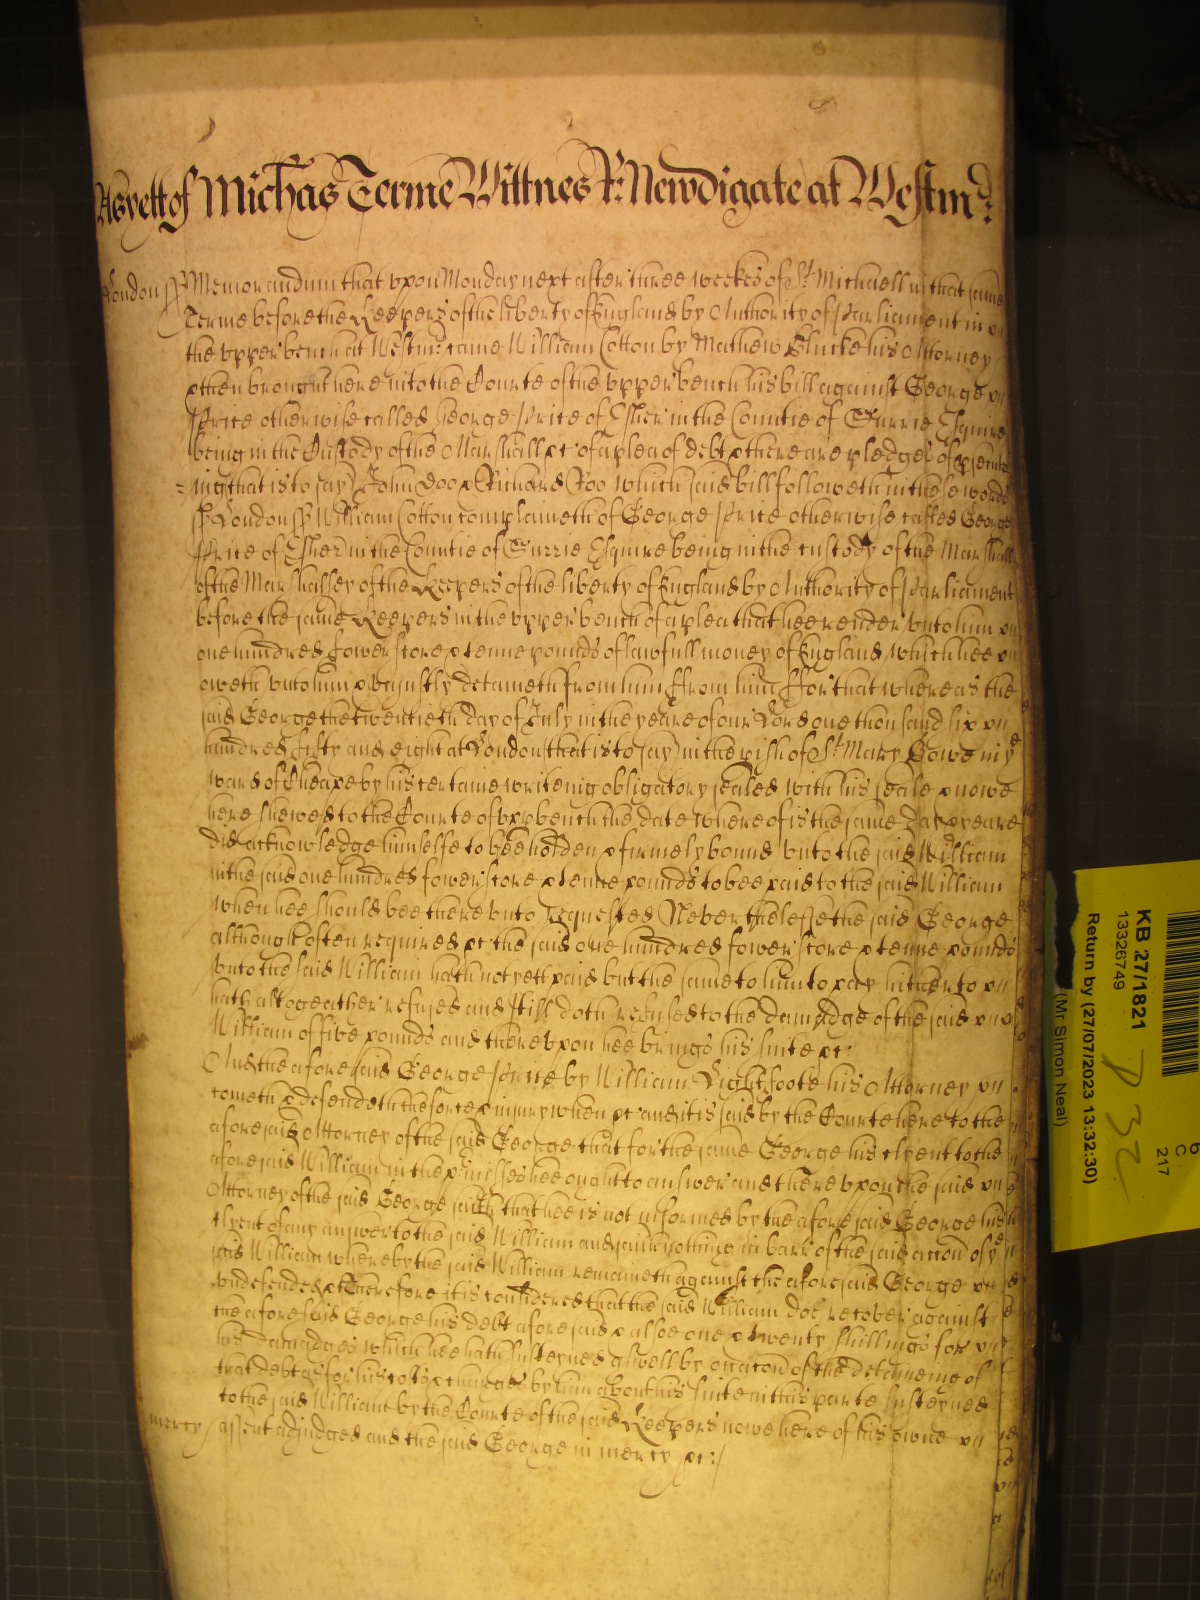 As yett of Michas Terme Wittnes R: Newdigate at Westmr:
London ss Memorandum that upon Monday next after three weekes of St Michaell in that same
Terme before the Keepers of the liberty of England by Authority of Parliament in
the upper bench at Westmr: came William Cotton by Mathew Blucke his Attorney
& then brought here into the Courte of the upper bench his bill against George
Price otherwise called George Price of Esher in the Countie of Surrie Esquire
being in the Custody of the Marshall &c of a plea of debt & there are pledges of prsecut
=ing that is to say John Doo & Richard Roo which said bill followeth in these words
ss London ss William Cotton complaineth of George Price otherwise called George
Price of Esher in the Countie of Surrie Esquire being in the custody of the Marshall
of the Marshalsey of the Keepers of the liberty of England by Authority of Parliament
before the same Keepers in the upper bench of a plea that hee render unto him
one hundred fower score & tenne pounds of lawfull money of England which hee
oweth unto him & unjustly detaineth from him ffrom him ffor that whereas the
said George the twentieth day of July in the yeare of our Lord one thousand six
hundred fifty and eight at London (that is to say) in the pish of St Mary Bowe in ye
ward of Cheape by his certaine writeing obligatory sealed with his seale & nowe
here shewed to the Courte of upp bench the date whereof is the same day & yeare
did acknowledge himselfe to bee holden & firmely bound unto the said William
in the said one hundred fower score & tenne pounds to bee paid to the said William
when hee should bee thereunto requested Neverthelesse the said George
although often required &c the said one hundred fower score & tenne pounds
unto the said William hath not yett paid but the same to him to pay hitherto
hath altogeather refused and still doth refuse to the damadge of the said
William of five pounds and thereupon hee brings his suite &c:
And the aforesaid George Price by William Lightfoote his Attorney
cometh & defendeth the force & injury when &c and it is said by the Courte here to the
aforesaid Attorney of the said George that for the same George his clyent to the
aforesaid William in the prmisses hee ought to answer and thereupon the said
Attorney of the said George saith that hee is not informed by the aforesaid George his
clyent of any answer to the said William and saith nothing in barr of the said accon of ye
said William whereby the said William remaineth against the aforesaid George
undefended &c Therefore it is considered that the said William doe recover against
the aforesaid George his debt aforesaid & alsoe one & twenty shillings for
his damadges which hee hath susteyned aswell by occacon of the deteineing of
that debt as for his costs & charges by him about his suite in this parte susteyned
to the said William by the Courte of the said Keepers nowe here of his owne
mercy / assent adjudged and the said George in mercy &c:/
KB 27/1821
13326749
Return by (27/07/2023 13:32:30)
(Mr Simon Neal)
C
217
P 32